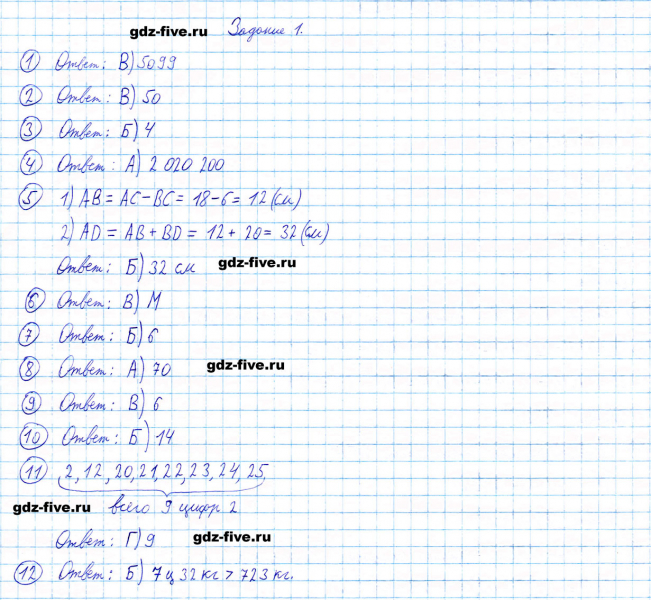 gdz-five.ru Задание 1.
1 Ответ: В) 5099
2 Ответ: В) 50
3 Ответ: Б) 4
4 Ответ: А) 2 020 200
5 1) AB = AC - BC = 18 - 6 = 12 (см)
2) AD = AB + BD = 12 + 20 = 32 (см)
Ответ: Б) 32 см gdz-five.ru
6 Ответ: В) М
7 Ответ: Б) 6
8 Ответ: А) 70 gdz-five.ru
9 Ответ: В) 6
10 Ответ: Б) 14
11 2, 12, 20, 21, 22, 23, 24, 25
gdz-five.ru всего 9 цифр 2
Ответ: Г) 9 gdz-five.ru
12 Ответ: Б) 7 ц 32 кг > 723 кг.